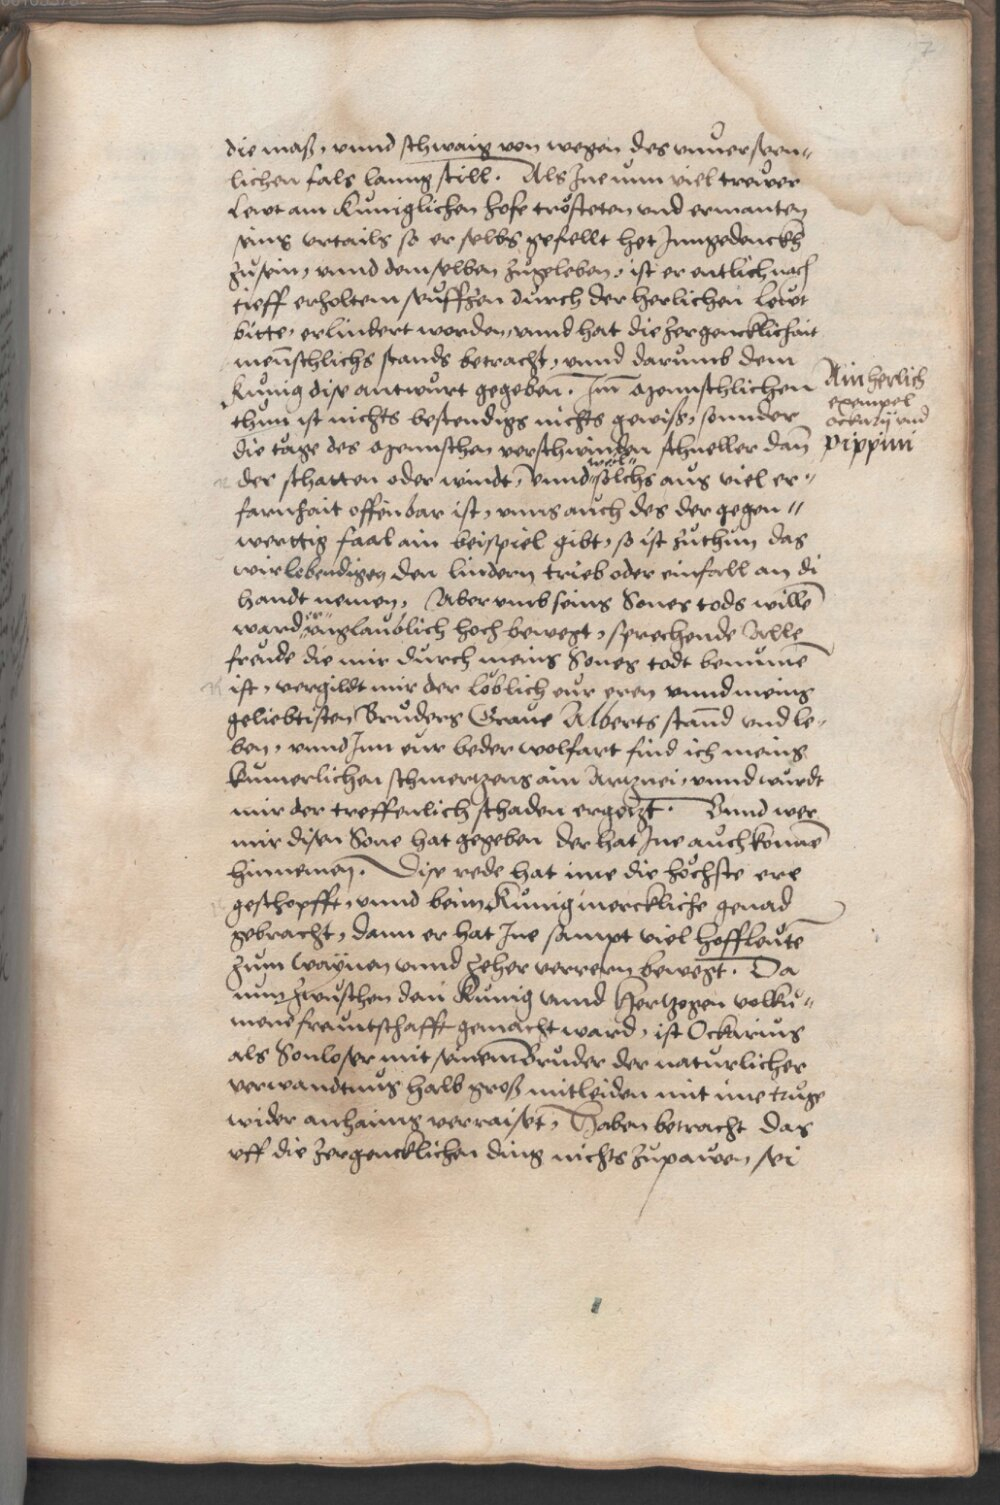 7
die maß, vnnd schwaig von wegen des vnuersehen-
lichen fals lanng still. Als Jne nun viel trewer
Lewt am Kuniglichen hofe trösteten vnd ermanten
seins vrtails so er selbs gefellt het Jnngedenckh
zusein, vnnd demselben zugeleben, ist er entlich nach
tieff erholtem seuffzen durch der herlichen Lewt
bitte, erlindert worden, vnnd hat die zergencklichait
menschlichs stands betracht, vnnd darumb dem
Kunig dise antwurt gegeben. Im Menschlichen
thun ist nichts bestendigs nichts gewiß, sonnder
die täge des Mennschen verschwinden schneller dan
der schatten oder windt, Vnnd weil solchs aus viel er-
farnhait offenbar ist, vnns auch des der gegen-
werttig faal ain beispiel gibt, so ist zuthun das
wir lebendigen den lindern trieb oder einfall an di
handt nemen, Aber vmb seins Sones tods willen
ward er vnglaublich hoch bewegt, sprechende Alle
freude die mir durch meins Sones todt benumen
ist, vergildt mir der löblich eur eren vnnd meins
geliebtisten Bruders Graue Alberts stannd vnd le-
ben, vnnd Jnn eur beder wolfart find ich meins
kumerlichen schmertzens ain Artznei, vnnd wurdt
mir der treffenlich schaden ergötzt. Vnnd wer
mir disen Sone hat gegeben der hat Jne auch konnen
hinnemen. Dise rede hat ime die höchste ere
geschopfft, vnnd beim Kunig merckliche genad
gebracht, dann er hat Jne sampt viel hoffleuten
zum waynen vnnd zeher verrern bewegt. Da
nun zwuschen dem Kunig vnnd Hertzogen volku-
mene freuntschafft gemacht ward, ist Ockarius
als Sonloser mit seinem Bruder der naturlicher
verwandtnus halb groß mitleiden mit ime truge
wider anhaims verraiset, Haben betracht das
vff die zergencklichen ding nichts zupawen sei
Ain herlich
exempel
ockarÿ vnd
pippini